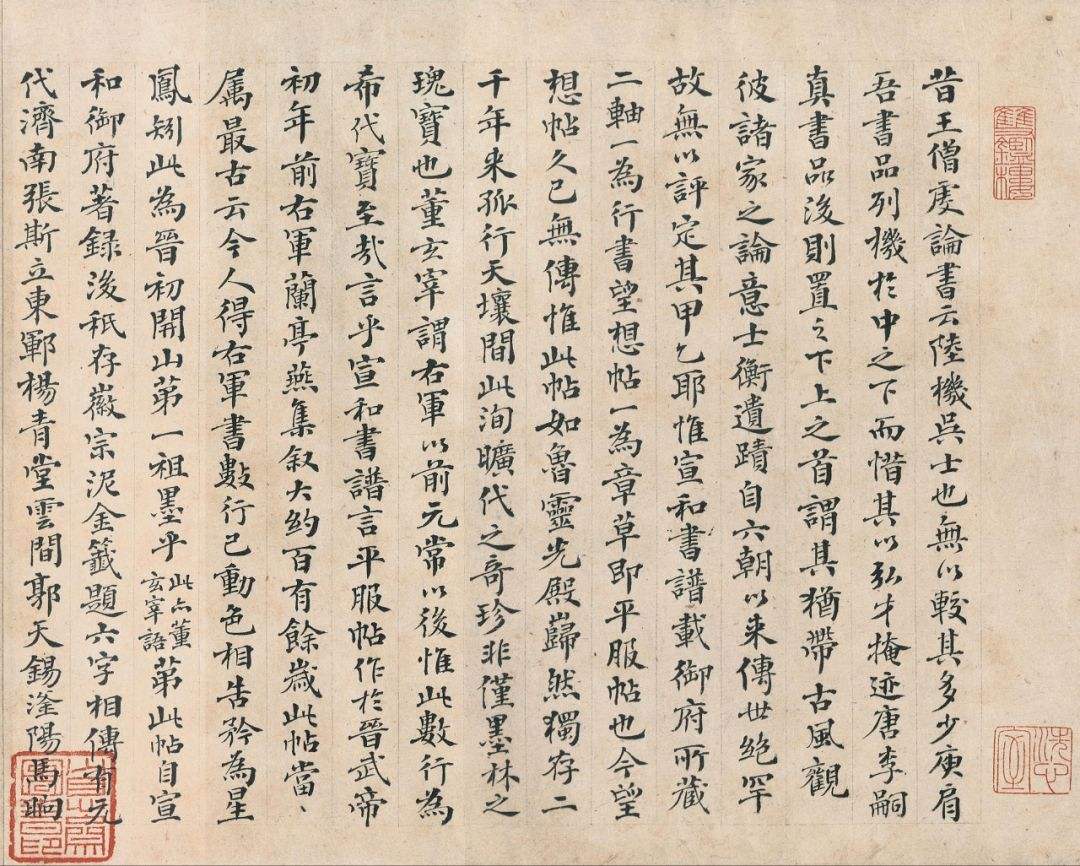 雙鑑樓
昔王僧虔論書云陸機吳士也無以較其多少庾肩
吾書品列機於中之下而惜其以弘才掩迹唐李嗣
真書品後則置之下上之首謂其猶帶古風觀
彼諸家之論意士衡遺蹟自六朝以來傳世絕罕
故無以評定其甲乙耶惟宣和書譜載御府所藏
二軸一為行書望想帖一為章草即平服帖也今望
想帖久已無傳惟此帖如魯靈光殿巋然獨存二
千年來孤行天壤間此洵曠代之奇珍非僅墨林之
瑰寶也董玄宰謂右軍以前元常以後惟此數行為
希代寶至哉言乎宣和書譜言平服帖作於晉武帝
初年前右軍蘭亭燕集叙大約百有餘歲此帖當〻
属最古云今人得右軍書數行已動色相告矜為星
鳳矧此為晉初開山第一祖墨乎此亦董玄宰語第此帖自宣
和御府著錄後秖存徽宗泥金籤題六字相傳有元
代濟南張斯立東鄆楊青堂雲間郭天錫滏陽馬昫